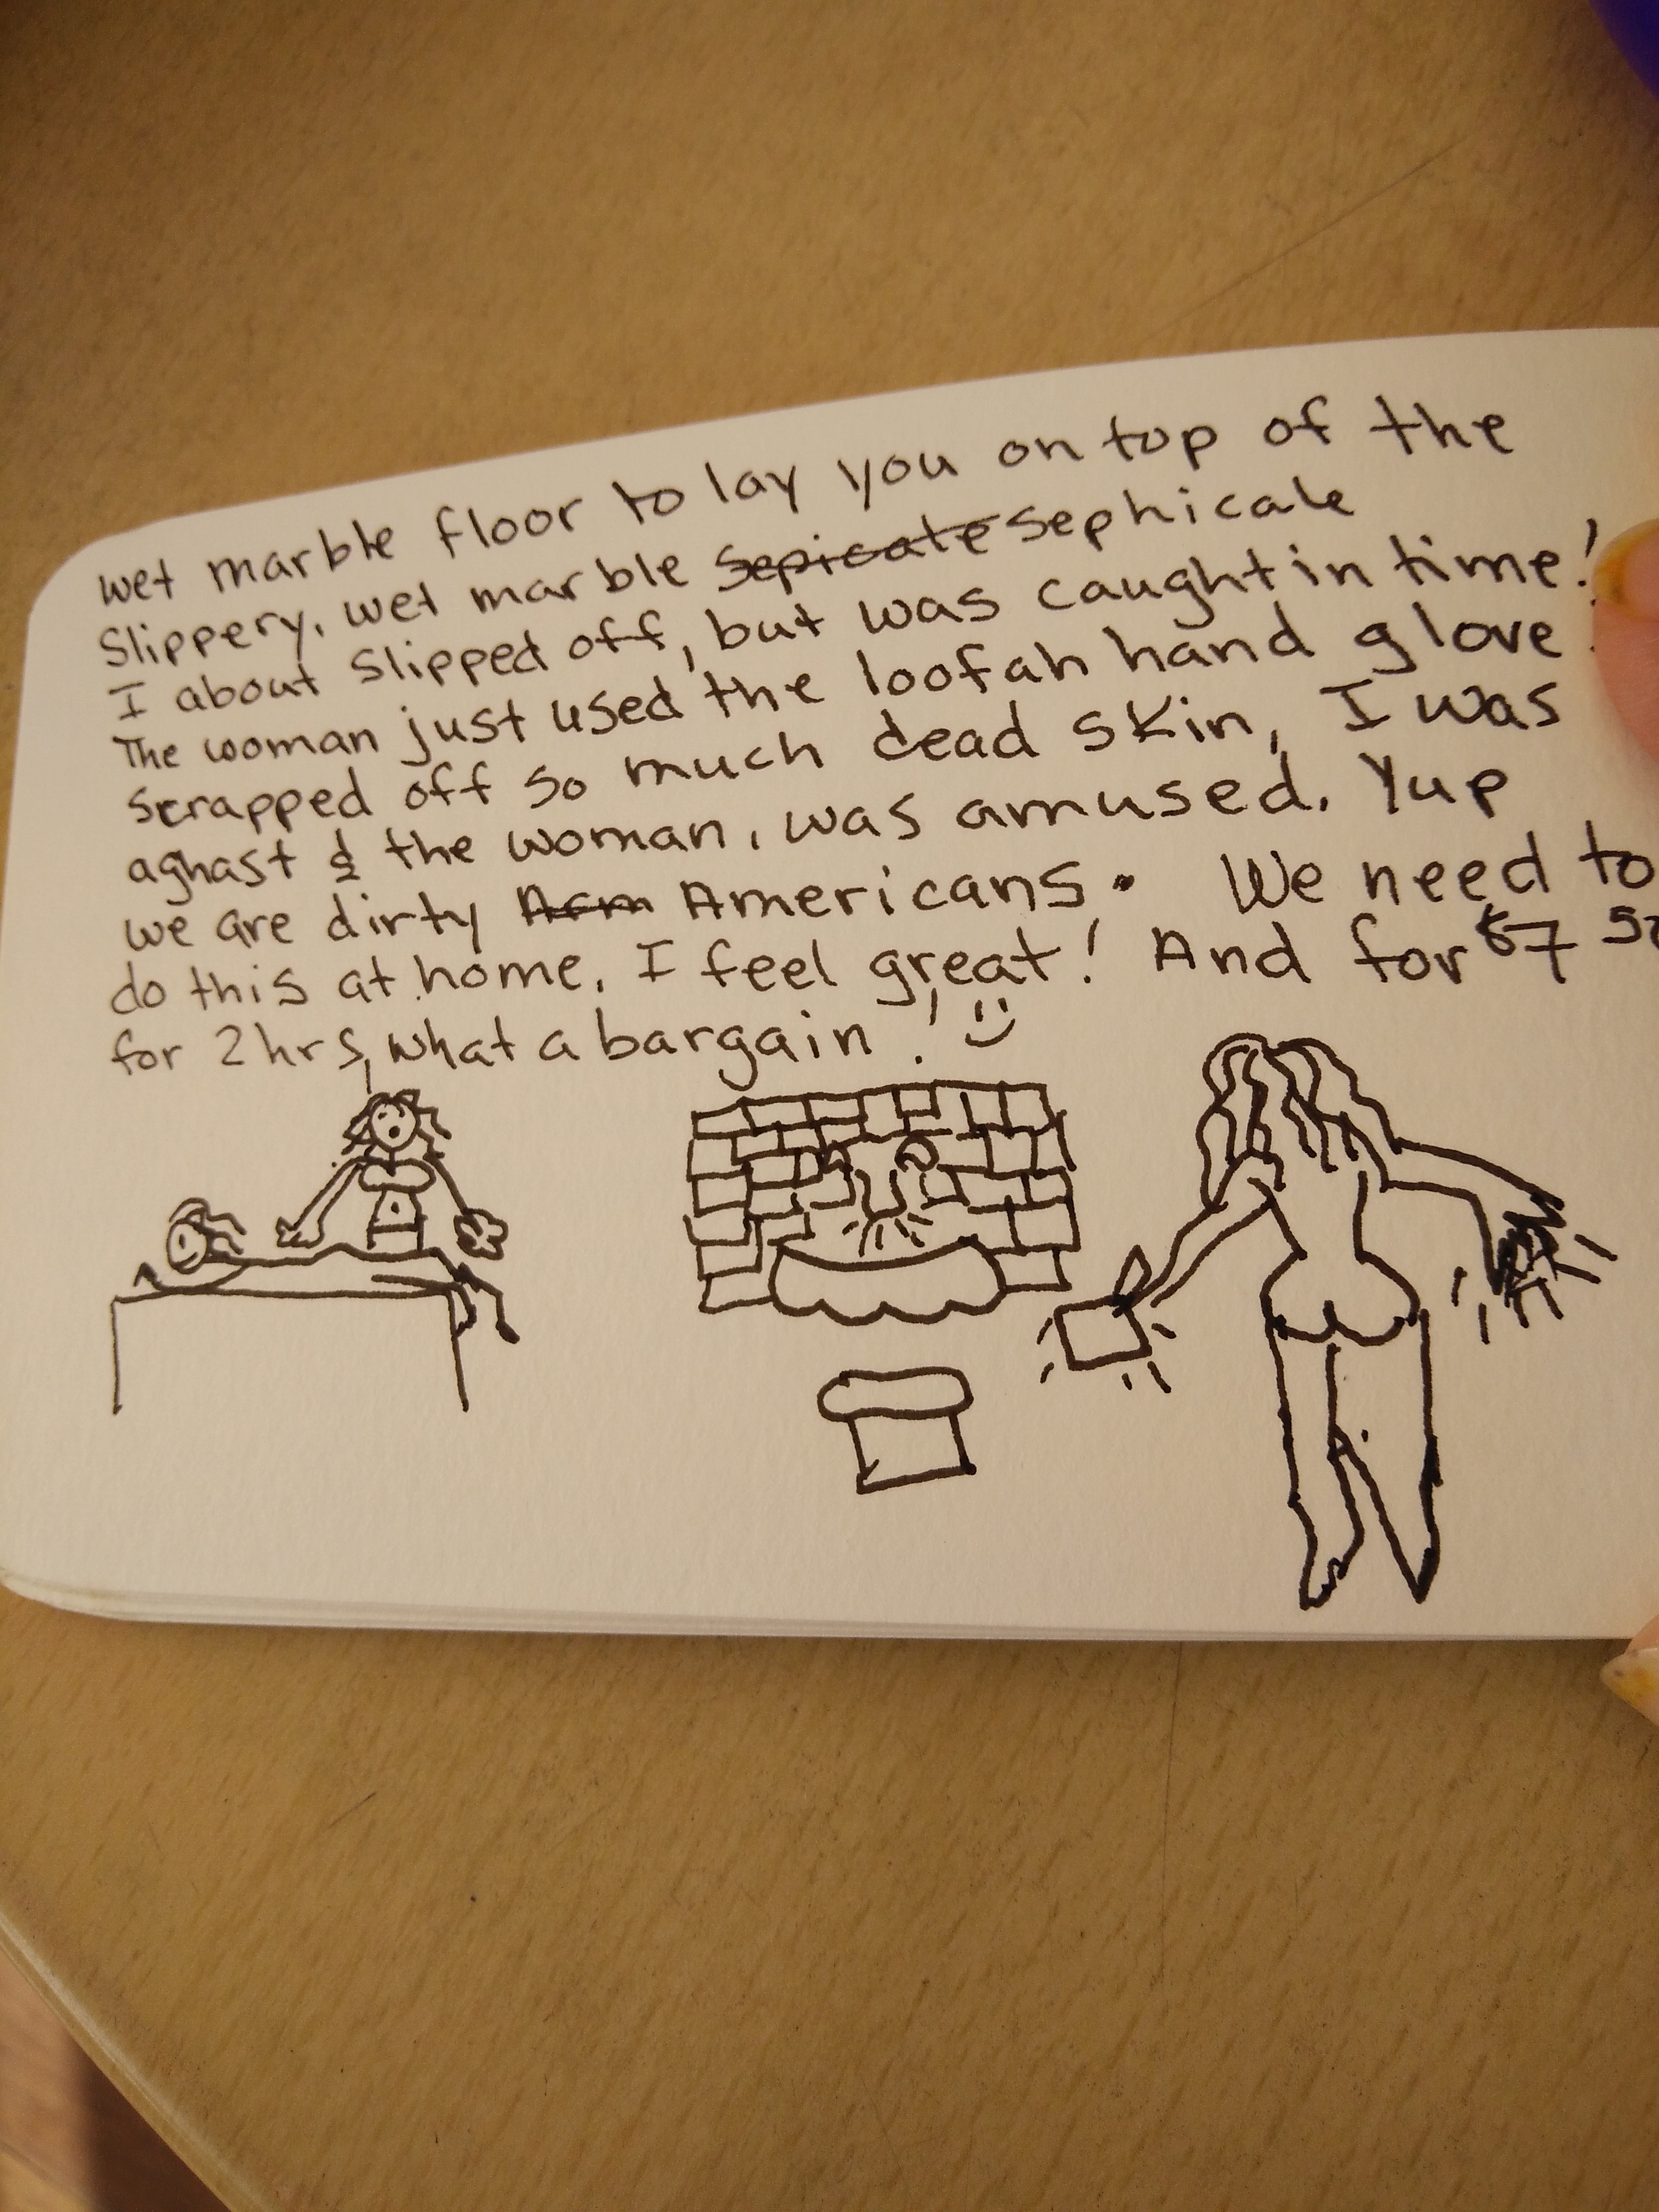 wet marble floor to lay you on top of the
slippery, wet marble sepicate sephicale
I about slipped off, but was caught in time!
The woman just used the loofah hand glove
scrapped off so much dead skin, I was
aghast & the woman, was amused. Yup
we are dirty Arm Americans. We need to
do this at home. I feel great! And for $7
for 2hrs, what a bargain!